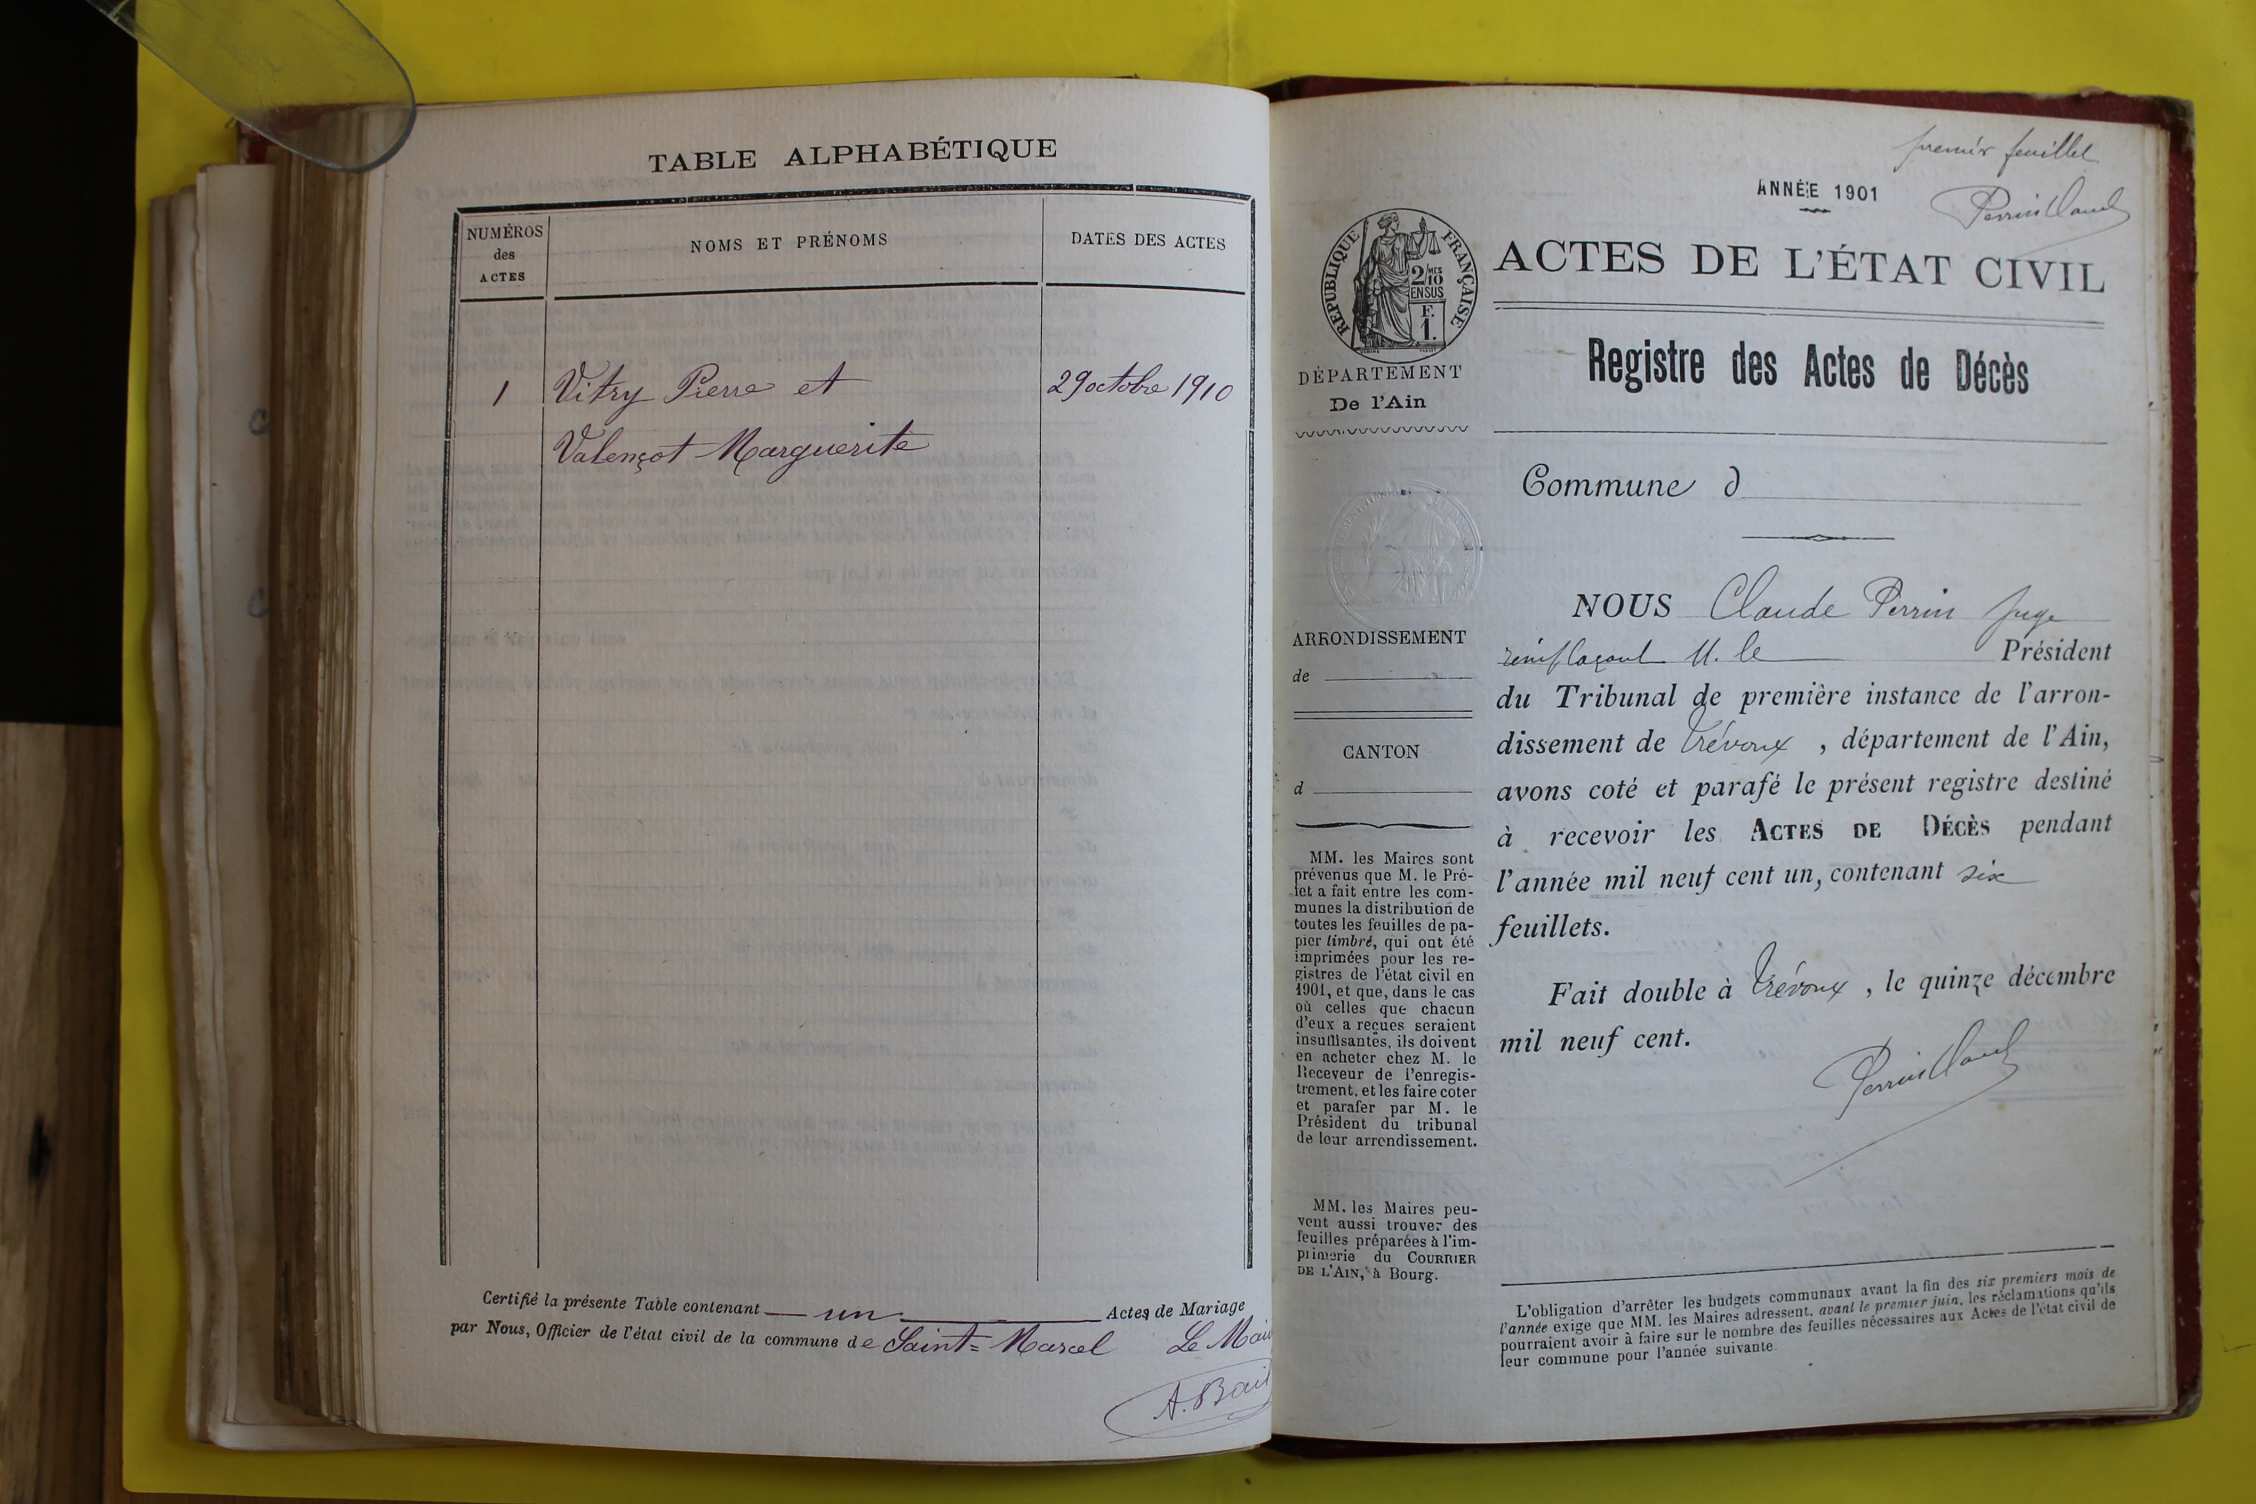 TABLE ALPHABÉTIQUE
NUMÉROS
des
ACTES
NOMS ET PRÉNOMS
DATES DES ACTES
1 Vitry Pierre et 29 octobre 1910
Valençot Marguerite
Certifié la présente Table contenant un Actes de Mariage
par Nous, Officier de l'état civil de la commune de Saint=Marcel Le Mai
premier feuillet
Perrin Claude
ANNÉE 1901
RÉPUBLIQUE FRANÇAISE
2/10 MES
EN SUS
F.
1.
ACTES DE L'ÉTAT CIVIL
Registre des Actes de Décès
DÉPARTEMENT
De l'Ain
Commune d
ARRONDISSEMENT
de
CANTON
d
MM. les Maires sont
prévenus que M. le Pré-
fet a fait entre les com-
munes la distribution de
toutes les feuilles de pa-
pier timbré, qui ont été
imprimées pour les re-
gistres de l'état civil en
1901, et que, dans le cas
où celles que chacun
d'eux a reçues seraient
insuffisantes, ils doivent
en acheter chez M. le
Receveur de l'enregis-
trement, et les faire coter
et parafer par M. le
Président du tribunal
de leur arrondissement.
MM. les Maires peu-
vent aussi trouver des
feuilles préparées à l'im-
primerie du COURRIER
DE L'AIN, à Bourg.
NOUS Claude Perrin Juge
remplaçant M. le Président
du Tribunal de première instance de l'arron-
dissement de Trévoux , département de l'Ain,
avons coté et parafé le présent registre destiné
à recevoir les ACTES DE DÉCÈS pendant
l'année mil neuf cent un, contenant six
feuillets.
Fait double à Trévoux , le quinze décembre
mil neuf cent.
Perrin Claude
L'obligation d'arrêter les budgets communaux avant la fin des six premiers mois de
l'année exige que MM. les Maires adressent, avant le premier juin, les réclamations qu'ils
pourraient avoir à faire sur le nombre des feuilles nécessaires aux Actes de l'état civil de
leur commune pour l'année suivante.